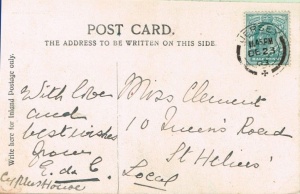 POST CARD.
THE ADDRESS TO BE WRITTEN ON THIS SIDE.
Write here for Inland Postage only.
With love
and
best wishes
from
E. da C.
Cyprus House
Miss Clement
10 Queen's Road
St Heliers
Local
JERSEY
DE 23